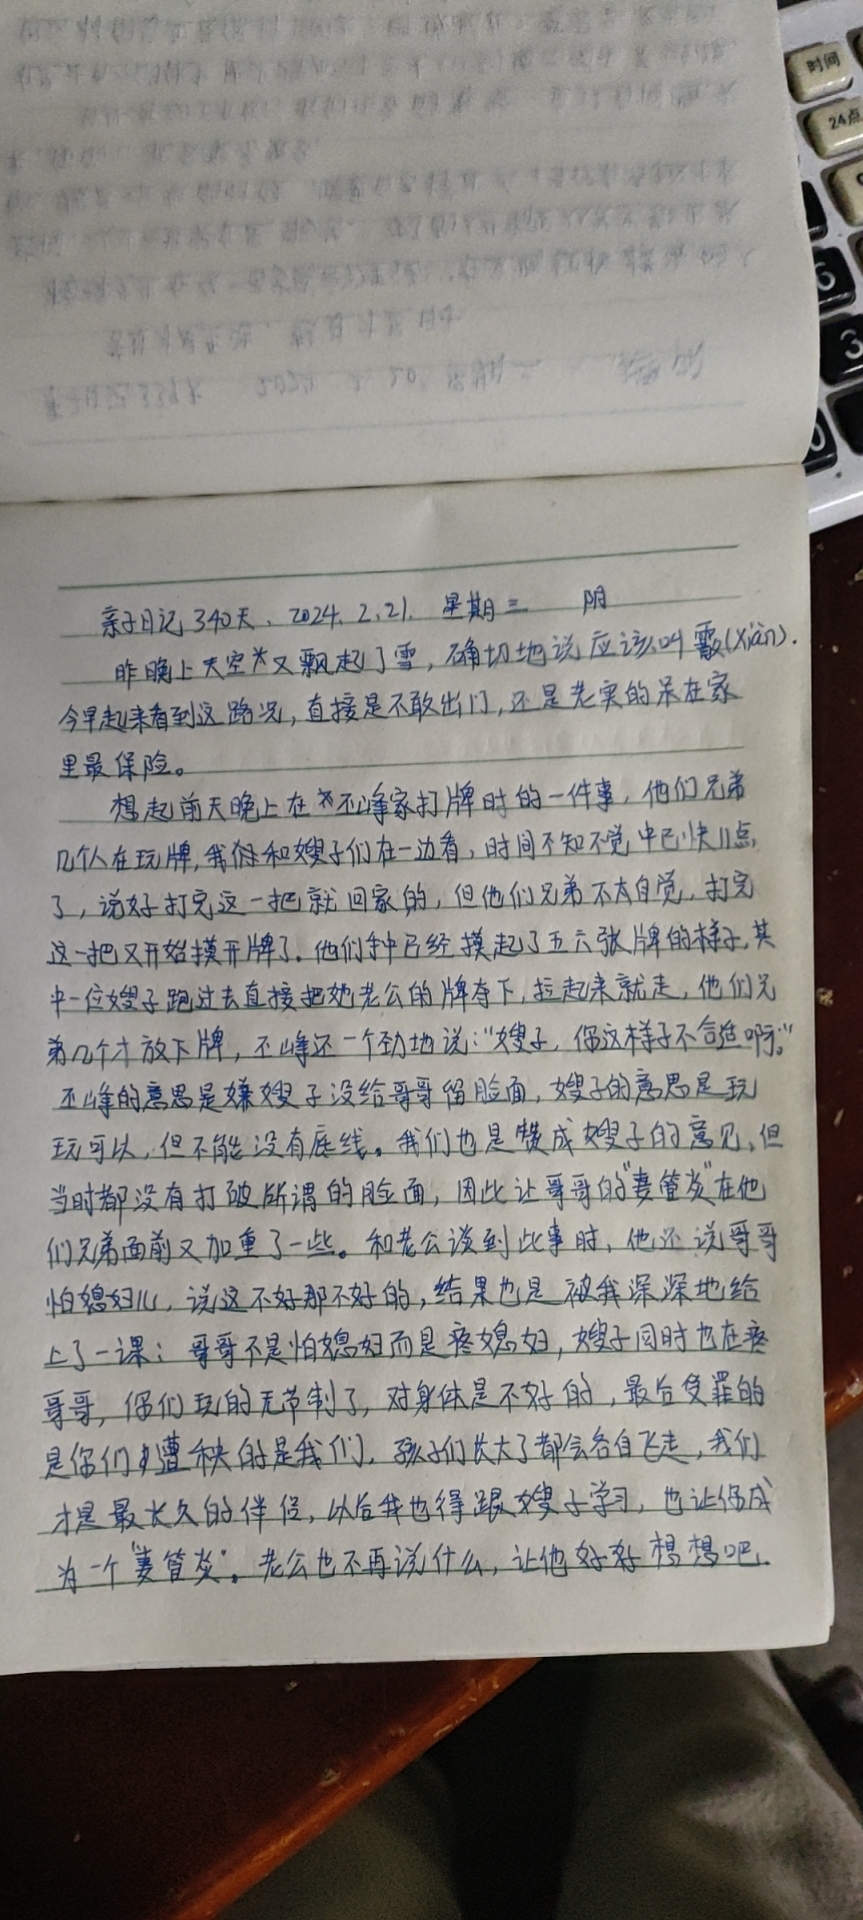 时间
24点
6
3
0
亲子日记340天. 2024. 2.21. 星期三 阴
昨晚上天空又飘起了雪，确切地说应该叫霰(Xiàn).
今早起来看到这路况，直接是不敢出门，还是老实的呆在家
里最保险。
想起前天晚上在丕峰家打牌时的一件事，他们兄弟
几个人在玩牌，我和嫂子们在一边看，时间不知不觉中已快11点
了，说好打完这一把就回家的，但他们兄弟不太自觉，打完
这一把又开始摸开牌了. 他们手中已经摸起了五六张牌的样子，其
中一位嫂子跑过去直接把她老公的牌夺下，拉起来就走，他们兄
弟几个才放下牌，丕峰还一个劲地说：“嫂子，你这样子不合适啊。”
丕峰的意思是嫌嫂子没给哥哥留脸面，嫂子的意思是玩
玩可以，但不能没有底线。我们也是赞成嫂子的意见，但
当时都没有打破所谓的脸面，因此让哥哥的“妻管炎”在他
们兄弟面前又加重了一些。和老公谈到此事时，他还说哥哥
怕媳妇儿，说这不好那不好的，结果也是被我深深地给
上了一课：哥哥不是怕媳妇而是疼媳妇，嫂子同时也在疼
哥哥，你们玩的无节制了，对身体是不好的，最后受罪的
是你们遭秧的是我们，孩子们长大了都会各自飞走，我们
才是最长久的伴侣，以后我也得跟嫂子学习，也让你成
为一个“妻管炎”。老公也不再说什么，让他好好想想吧.